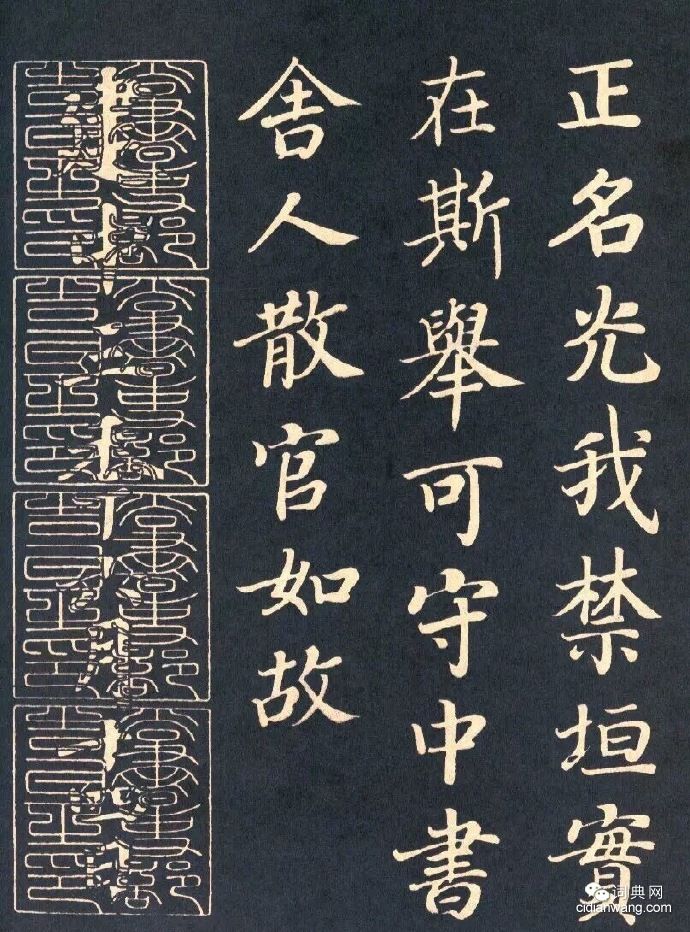 正名光我禁垣實
在斯舉可守中書
舍人散官如故
词典网
cidianwang.com